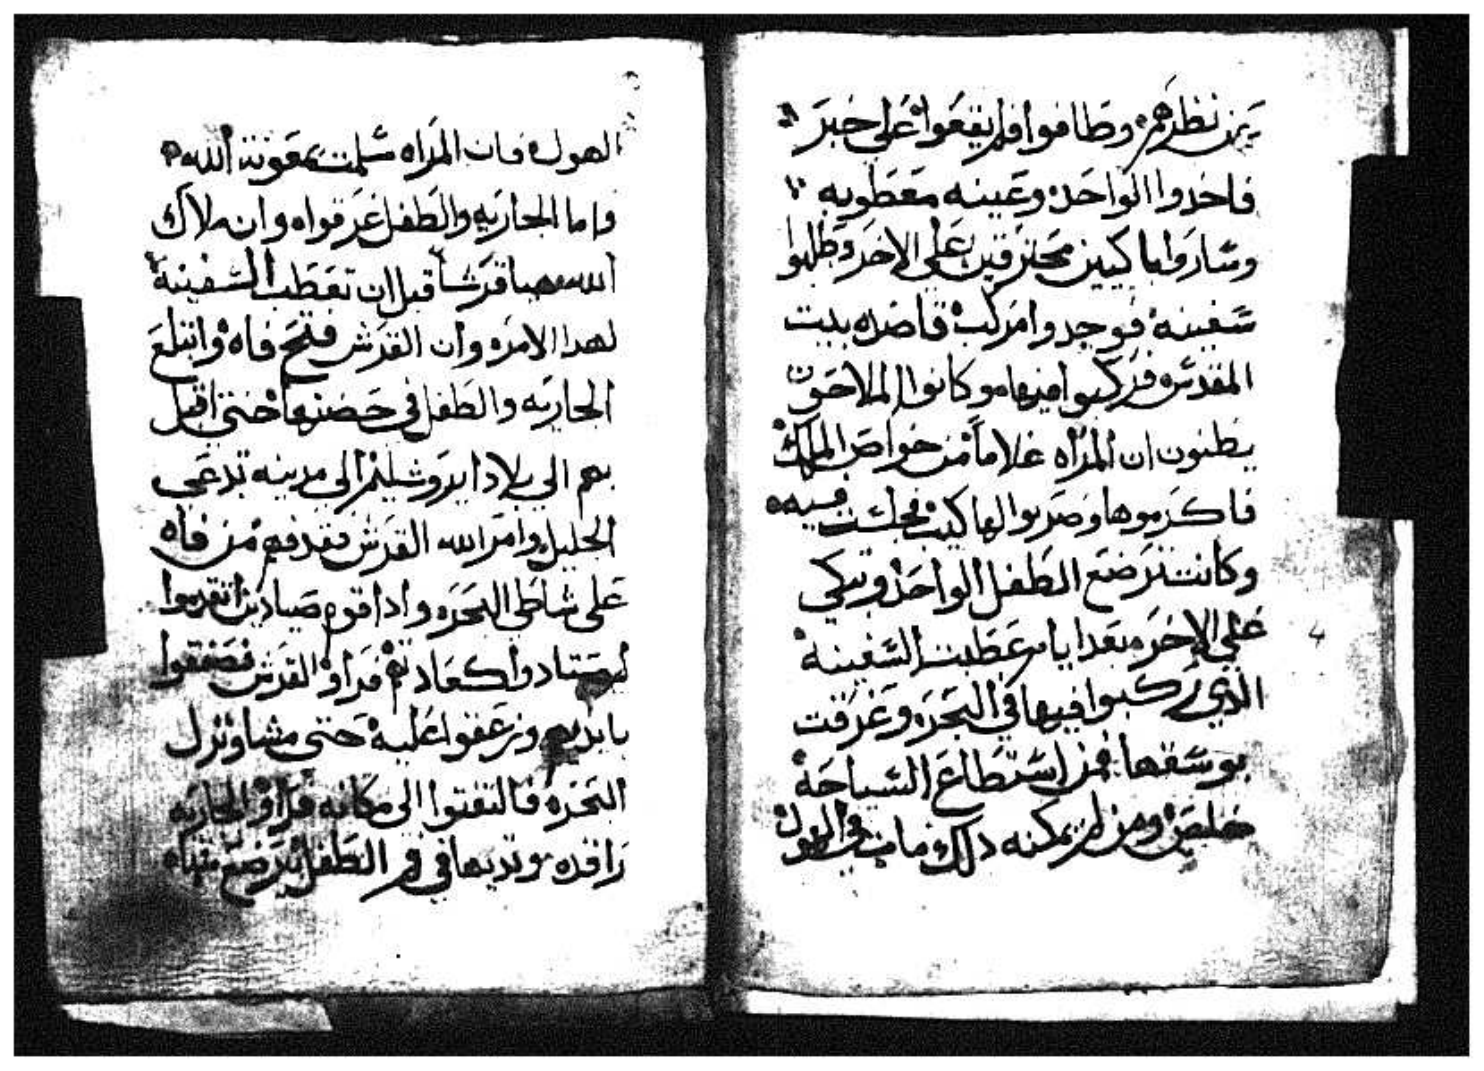 نظرهم وطافوا فلم يقعوا على خبر
فاخدوا الواحد وعينه معطوبه
وساروا باكيين محترقين على الاخر وطلبوا
سفينه فوجدوا مركب قاصده بيت
المقدس فركبوا فيها وكانوا الملاحون
يظنون ان المراه غلاماً من خواص الملك
فاكرموها وضربوا لها فجلست فيه
وكانت ترضع الطفل الواحد وتبكي
على الاخر بعد ايام عطبت السفينه
الذي ركبوا فيها في البحر وغرقت
بوسقها فمن استطاع السباحة
خلص ومن لم يمكنه دلك مات في الهول
الهول فان المراه سلمت بمعونة الله
واما الجاريه والطفل غرقوا وان ملاك
الله قرشا قبل ان تعطب السفينة
لهدا الامر وان القرش فتح فاه وابتلع
الجاريه والطفل في حضنها حتى اقبل
بهم الي بلاد ايروشليم الى مدينه تدعي
الجليل وامر الله القرش فقدفهم من فاه
على شاطى البحر وادا قوم صيادين اتقدموا
ليصتادوا كعادتهم فراو القرش فصفقوا
بايديهم وزعقوا عليه حتى مشا ونزل
البحر فالتفتوا الى مكانه فراو الجاريه
راقده وتديها في فم الطفل يرضع منه